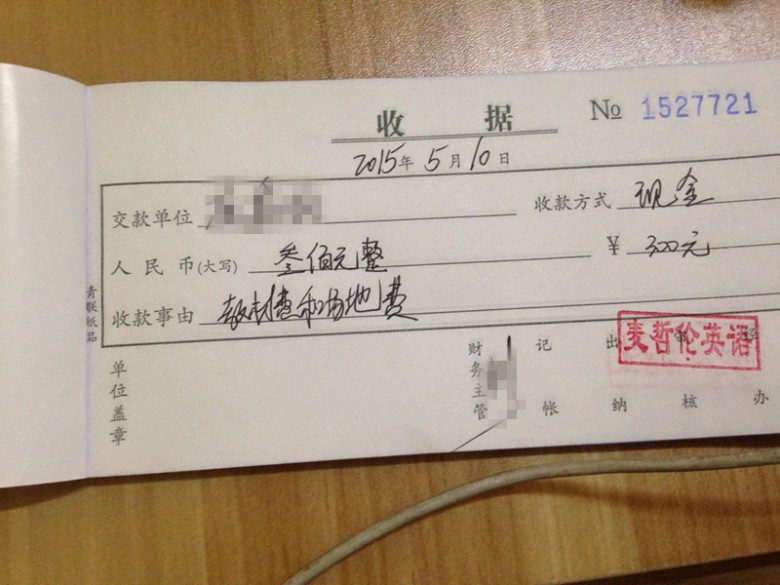 收据 № 1527721
2015年5月10日
交款单位 收款方式 现金
人民币(大写) 叁佰元整 ¥ 300元
收款事由 教材费和场地费
青联纸品
麦哲伦英语
单位盖章 财务主管 记帐 出纳 审核 经办